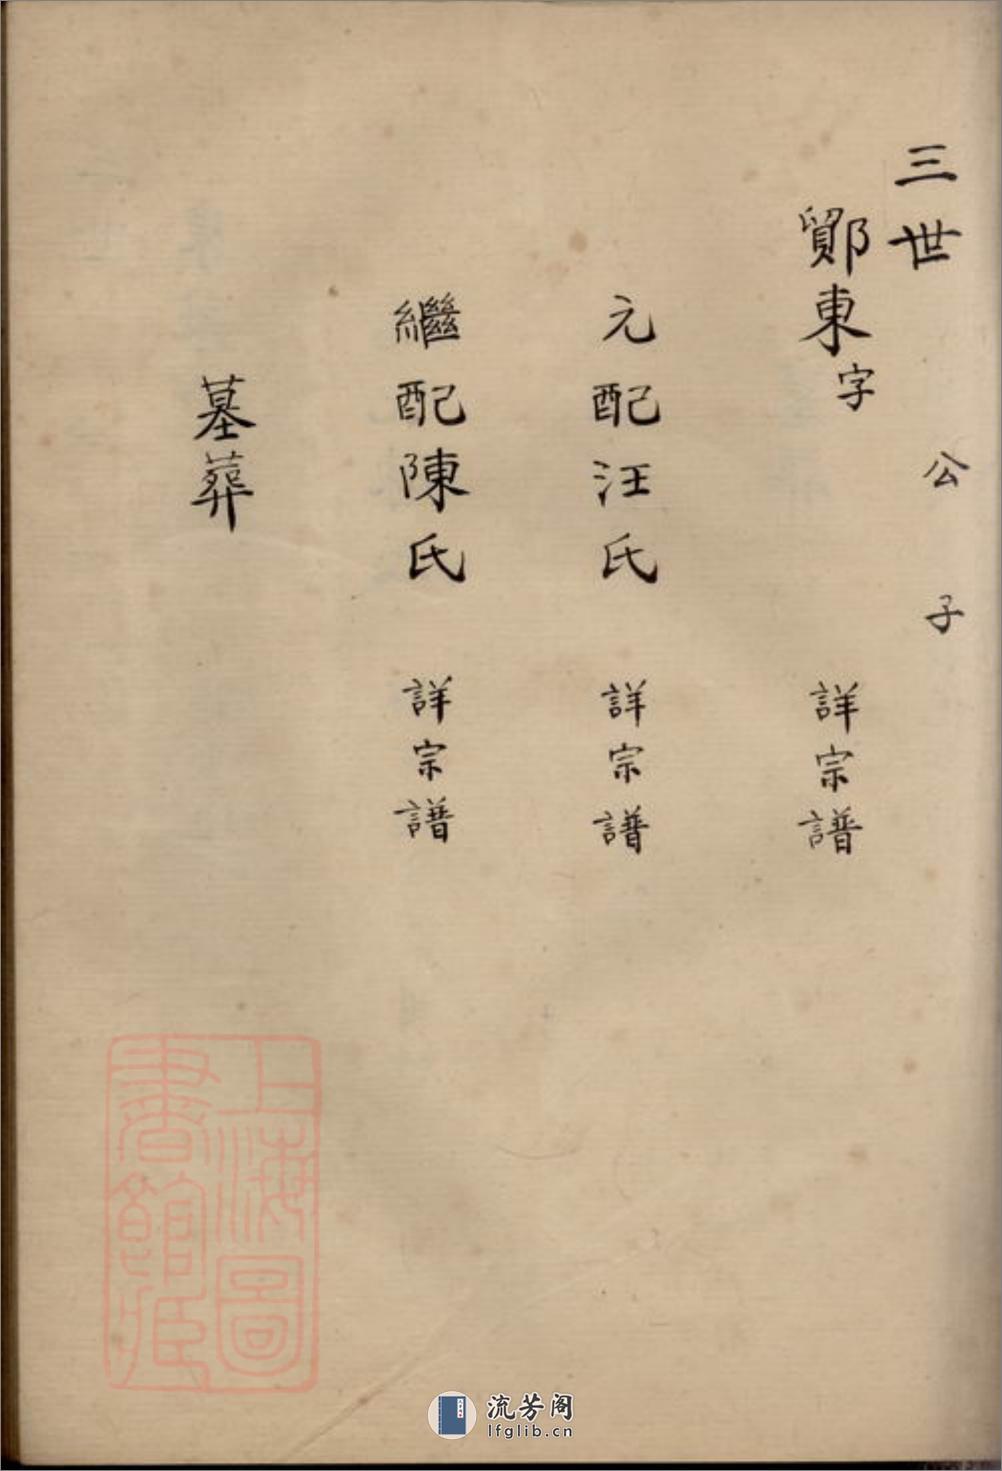 三世 公 子
鄮東字 詳宗譜
元配汪氏 詳宗譜
繼配陳氏 詳宗譜
墓葬
上海圖
書館藏
流芳阁
lfglib.cn